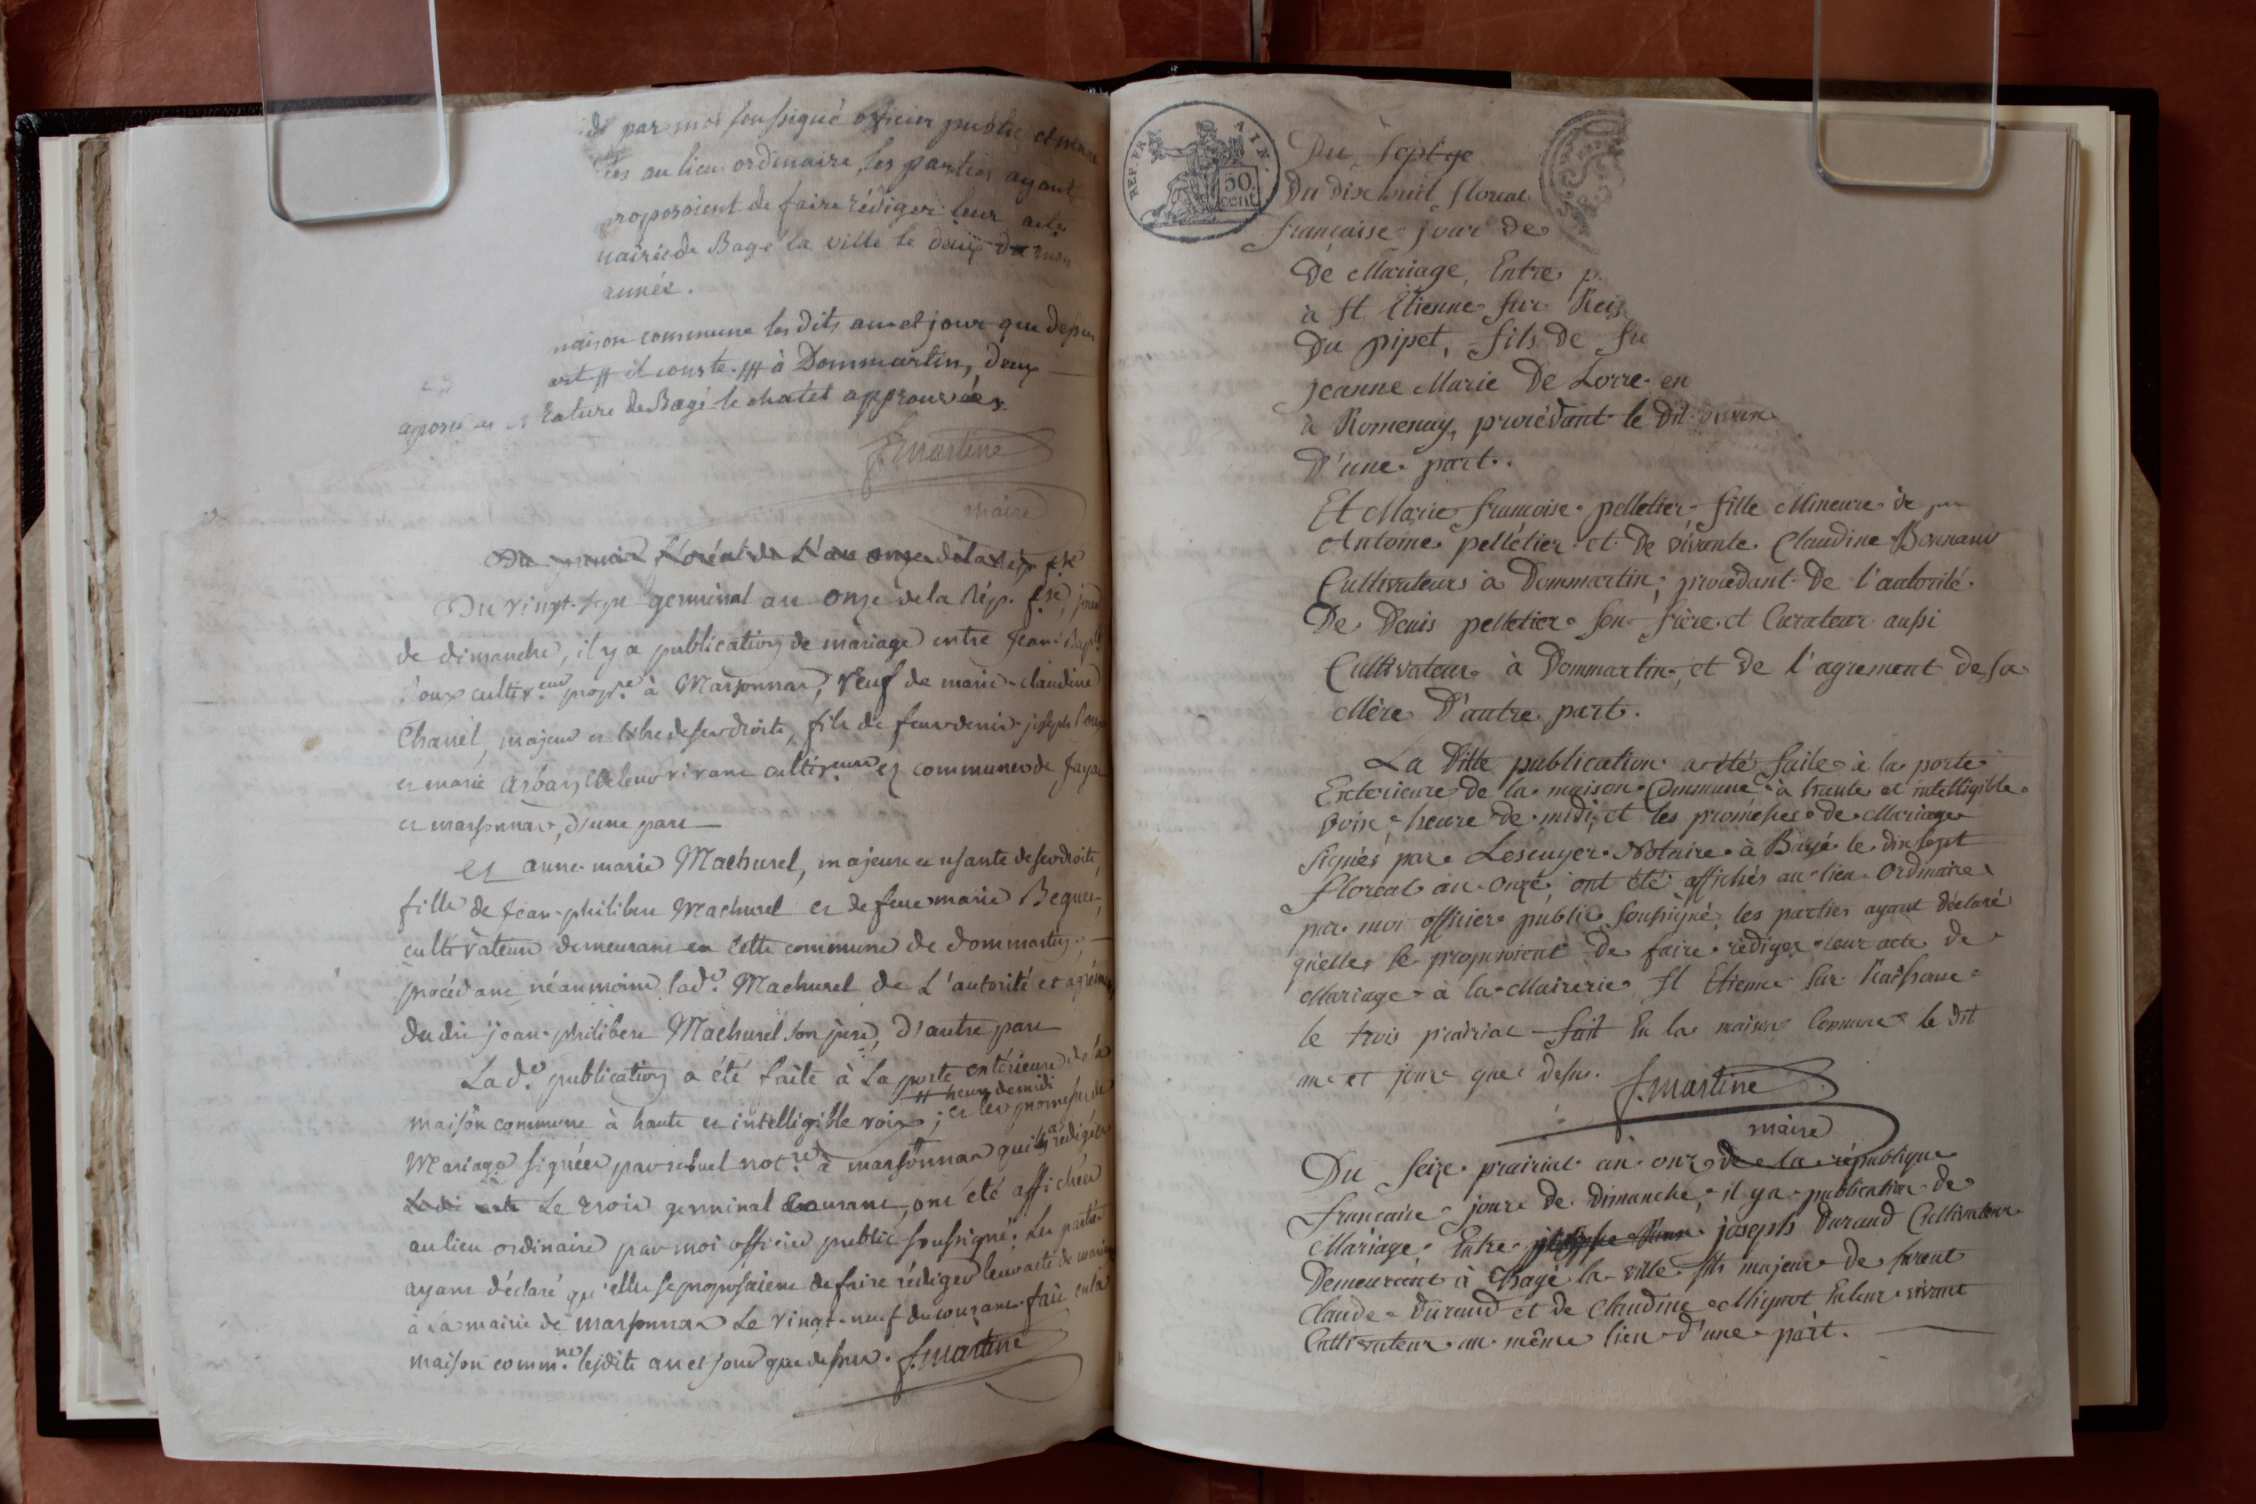 par moi soussigné officier public et
au lieu ordinaire, les parties ayant
proposoient de faire rédiger leur acte
mairie de Bagé la ville le deux du mois
année.
maison commune les dits an et jour que dessus
art # il conste. ## à Dommartin, deux
rature de Bagé le chatel approuvées
J. martine
maire
Du floréal de L'an onze de la rép. fse
Du vingt-sept germinal an onze de la Rép. fse, jour
de dimanche, il y a publication de mariage entre Jean-Bapte
cultiv.eur prop.re à Marsonnas, veuf de marie-claudine
Chanel, majeur et libre de ses droits, fils de feu denis-joseph
et marie Arban de leur vivant cultiv.eurs es communes de
et marsonnas, d'une part
et anne-marie Machurel, majeure et usante de ses droits,
fille de jean-philibert Machurel et de feue marie
cultivateur demeurant en cette commune de dommartin,
procédant néanmoins lad.e Machurel de L'autorité et agrément
dudit jean-philibert Machurel son père, d'autre part
La d.e publication a été faite à La porte extérieure de la
# heure de midi
maison commune à haute et intelligible voix ; et les promesses de
Mariage signées par not.re à marsonnas qui les a rédigées
Le trois germinal courant, ont été affichées
au lieu ordinaire par moi officier public soussigné. Les parties
ayant déclaré qu'elles se proposaient de faire rédiger leur acte de mariage
à la mairie de marsonnas Le vingt-neuf du courant. fait en la
maison comm.ne lesdits an et jour que dessus. J. martine
REP. FRA. AIN.
50 cent
Du Sept ge
Du dix huit floreal
francaise jour de
De Mariage, Entre
à St Etienne sur Reis
Du pipet, fils De
jeanne Marie De Lorre en
à Romenay, procédant le dit
D'une part.
Et Marie francoise pelletier fille Mineure de
Antoine pelletier et De vivante Claudine Bonnand
Cultivateurs à Dommartin, procédant De l'autorité
De Denis pelletier son frère et Curateur aussi
Cultivateur à Dommartin, et de l'agrement de sa
Mère D'autre part.
La Ditte publication a été faite à la porte
Exterieure de la maison Commune à haute et intelligible
voix, heure de midi, et les promesses de Mariage
signés par Lescuyer Notaire à Bagé le dix sept
floreal an onze, ont été affichés au lieu Ordinaire
par moi officier public soussigné, les parties ayant déclaré
quelles se proposoient De faire rédiger leur acte de
Mariage à la Mairerie St Etienne sur Raissouse
le trois prairial fait En la maison Commune le dit
an et jour que desus. J. martine
maire
Du seize prairial an onze de la république
francaise jour de dimanche, il ya publication de
Mariage Entre joseph Durand Cultivateur
Demeurant à Bagé la ville fils majeur de
Claude Durand et de Claudine Mignot En leur vivant
Cultivateur au même lieu d'une part.